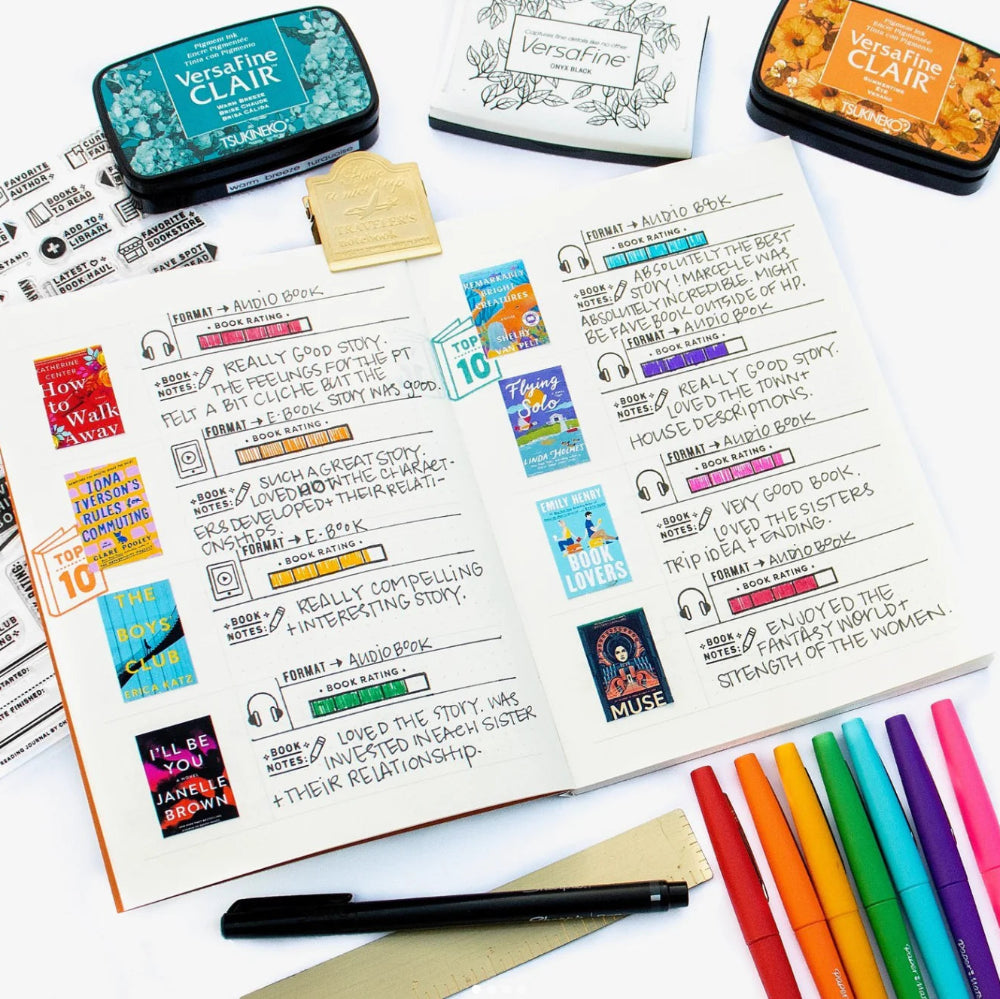 Pigment Ink
Encre Pigmentée
Tinta con Pigmento
VersaFine
CLAIR™
WARM BREEZE
BRISE CHAUDE
BRISA CÁLIDA
TSUKINEKO
warm breeze turquoise
Captures fine details like no other
VersaFine™
ONYX BLACK
Pigment Ink
Encre Pigmentée
Tinta con Pigmento
VersaFine
CLAIR™
SUMMERTIME
ÉTÉ
VERANO
TSUKINEKO
FAVORITE
AUTHOR
BOOKS
TO READ
ADD TO
LIBRARY
FAVORITE
BOOKSTORE
LATEST
BOOK HAUL
FAVE SPOT
TRAVELER'S
notebook
FORMAT → AUDIO BOOK
• BOOK RATING •
BOOK
NOTES:
REALLY GOOD STORY.
THE FEELINGS FOR THE PT
FELT A BIT CLICHE BUT THE
STORY WAS GOOD.
KATHERINE
CENTER
How
to Walk
Away
FORMAT → E-BOOK
• BOOK RATING •
BOOK
NOTES:
SUCH A GREAT STORY.
LOVED HOW THE CHARACT-
ERS DEVELOPED + THEIR RELATI-
ONSHIPS.
IONA
IVERSON'S
RULES for
COMMUTING
CLARE POOLEY
TOP
10
FORMAT → E-BOOK
• BOOK RATING •
BOOK
NOTES:
REALLY COMPELLING
+ INTERESTING STORY.
THE
BOYS
CLUB
ERICA KATZ
FORMAT → AUDIO BOOK
• BOOK RATING •
BOOK
NOTES:
LOVED THE STORY. WAS
INVESTED IN EACH SISTER
+ THEIR RELATIONSHIP.
I'LL BE
YOU
A NOVEL
JANELLE
BROWN
FORMAT → AUDIO BOOK
• BOOK RATING •
BOOK
NOTES:
ABSOLUTELY THE BEST
STORY! MARCELLE WAS
ABSOLUTELY INCREDIBLE. MIGHT
BE FAVE BOOK OUTSIDE OF HP.
REMARKABLY
BRIGHT
CREATURES
SHELBY
VAN PELT
TOP
10
FORMAT → AUDIO BOOK
• BOOK RATING •
BOOK
NOTES:
REALLY GOOD STORY.
LOVED THE TOWN +
HOUSE DESCRIPTIONS.
Flying
Solo
LINDA HOLMES
FORMAT → AUDIO BOOK
• BOOK RATING •
BOOK
NOTES:
VERY GOOD BOOK.
LOVED THE SISTERS
TRIP IDEA + ENDING.
EMILY HENRY
BOOK
LOVERS
FORMAT → AUDIO BOOK
• BOOK RATING •
BOOK
NOTES:
ENJOYED THE
FANTASY WORLD +
STRENGTH OF THE WOMEN.
MUSE